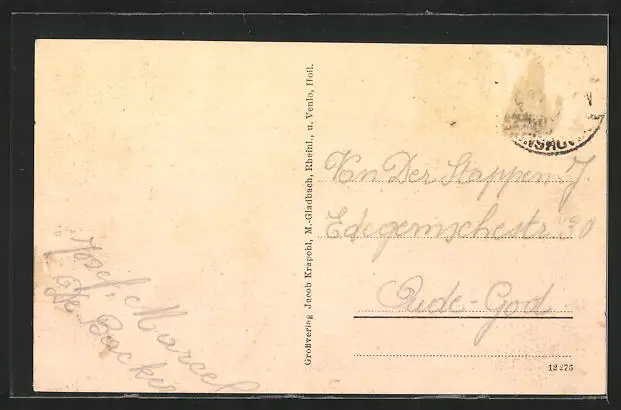 Josef, Marcel
De Backer
Großverlag Jacob Krapohl, M.-Gladbach, Rheinl., u. Venlo, Holl.
Van Der Stappen J.
Edegemschestr 30
Oude-God
12276